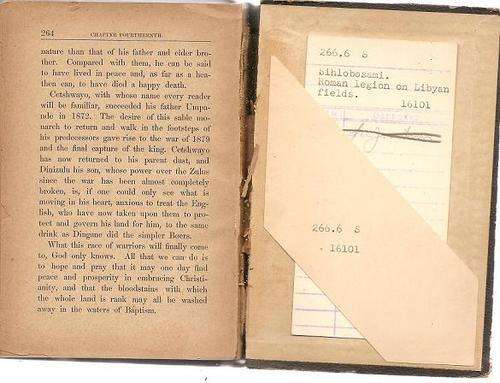 264 CHAPTER FOURTEENTH.
nature than that of his father and elder bro-
ther. Compared with them, he can be said
to have lived in peace and, as far as a hea-
then can, to have died a happy death.
Cetshwayo, with whose name every reader
will be familiar, succeeded his father Umpa-
nde in 1872. The desire of this sable mo-
narch to return and walk in the footsteps of
his predecessors gave rise to the war of 1879
and the final capture of the king. Cetshwayo
has now returned to his parent dust, and
Dinizulu his son, whose power over the Zulus
since the war has been almost completely
broken, is, if one could only see what is
moving in his heart, anxious to treat the Eng-
lish, who have now taken upon them to pro-
tect and govern his land for him, to the same
drink as Dingane did the simpler Boers.
What this race of warriors will finally come
to, God only knows. All that we can do is
to hope and pray that it may one day find
peace and prosperity in embracing Christi-
anity, and that the bloodstains with which
the whole land is rank may all be washed
away in the waters of Baptism.
266.6 S
Sihlobosami.
Roman legion on Libyan
fields.
16101
266.6 S
16101